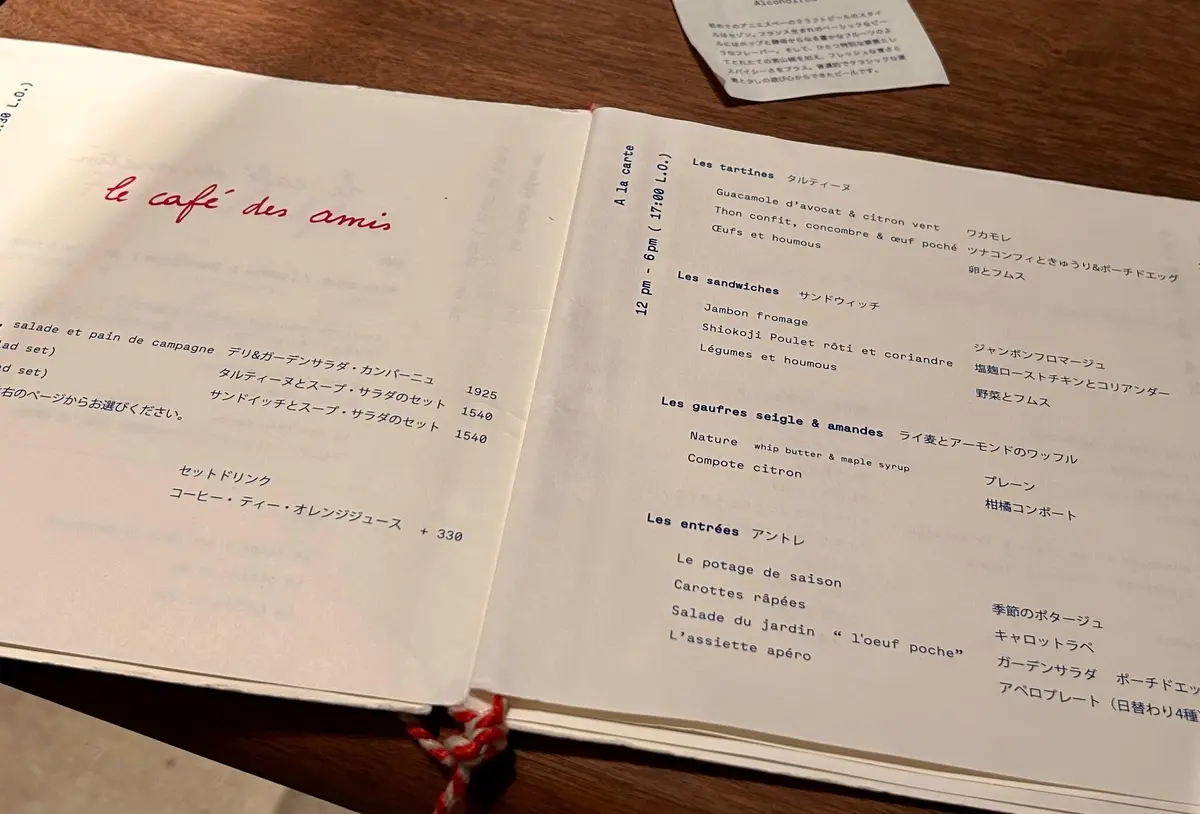 初めてのアニエスベーのクラフトビールのスタイ
ルはセゾン。フランス生まれのベーシックなビー
ルにはホップと酵母からなる豊かなフルーツのよ
うなフレーバー。そして、ひとつ特別な要素とし
スパイシーさをプラス。
:30 L.O.)
le café des amis
, salade et pain de campagne デリ&ガーデンサラダ・カンパーニュ 1925
ad set) タルティーヌとスープ・サラダのセット 1540
d set) サンドイッチとスープ・サラダのセット 1540
右のページからお選びください。
セットドリンク
コーヒー・ティー・オレンジジュース + 330
A la carte
12 pm - 6pm ( 17:00 L.O.)
Les tartines タルティーヌ
Guacamole d'avocat & citron vert ワカモレ
Thon confit, concombre & œuf poché ツナコンフィときゅうり&ポーチドエッグ
Œufs et houmous 卵とフムス
Les sandwiches サンドウィッチ
Jambon fromage ジャンボンフロマージュ
Shiokoji Poulet rôti et coriandre 塩麹ローストチキンとコリアンダー
Légumes et houmous 野菜とフムス
Les gaufres seigle & amandes ライ麦とアーモンドのワッフル
Nature whip butter & maple syrup プレーン
Compote citron 柑橘コンポート
Les entrées アントレ
Le potage de saison 季節のポタージュ
Carottes râpées キャロットラペ
Salade du jardin “ l'oeuf poche” ガーデンサラダ ポーチドエッ
L'assiette apéro アペロプレート（日替わり4種